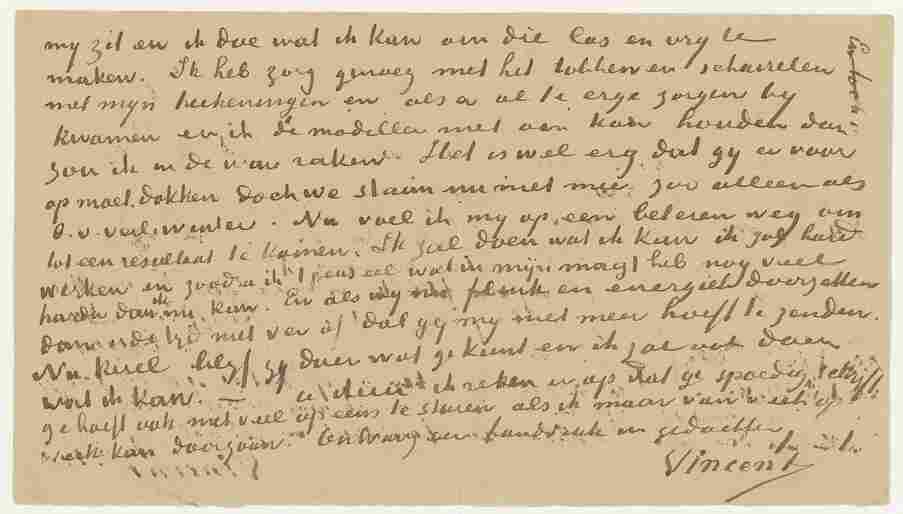 my zit en ik doe wat ik kan om die los en vry te
maken. Ik heb zorg genoeg met het tobben en scharrelen
met mijn teekeningen en als er al te erge zorgen by
kwamen en ik de modellen niet aan kon houden dan
zou ik in de war raken. Het is wel erg dat gy er voor
op moet dokken doch we staan nu niet meer zoo alleen als
b.v. verl. winter. Nu voel ik my op een beteren weg om
tot een resultaat te komen. Ik zal doen wat ik kan ik zal hard
werken en zoodra ik 't pens eel wat in mijn magt heb nog veel
harder dan ik nu kan. En als wy flink en energiek doorzetten
dan is de tyd niet ver af dat gij my niet meer hoeft te zenden.
Nu kerel begr. gy doen wat ge kunt en ik zal ook doen
wat ik kan. — ik reken er op dat ge spoedig schrijft
ge hoeft ook niet veel op eens te sturen als ik maar van week op
werk kan doorgaan. Ontvang een handdruk in gedachten
Vincent